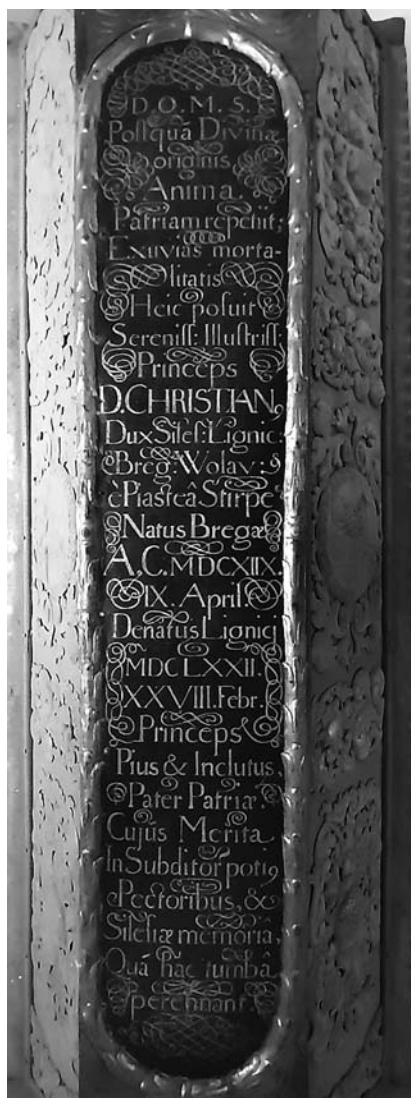 D.O.M.S.
Poſtquā Divinæ
originis
Anima
Patriam repetiit;
Exuvias morta-
litatis
Heic poſuit
Sereniſſ: Illuſtriſſ:
Princeps
D.CHRISTIANꝰ
Dux Sileſ: Lignic:
Breg: Wolav:
è Piaſteâ Stirpe
Natus Bregæ
A.C. MDCXIIX.
IX. April.
Denatus Lignicj
MDCLXXII.
XXVIII. Febr.
Princeps
Pius & Inclutus,
Pater Patriæ.
Cujus Merita
In Subditor potiꝰ
Pectoribus, &
Sileſiæ memoriâ,
Quá hac tumbâ
perennant.